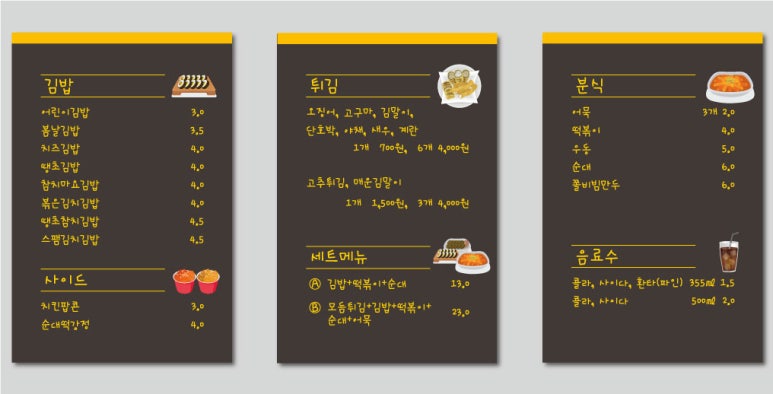 김밥
어린이김밥 3.0
봄날김밥 3.5
치즈김밥 4.0
땡초김밥 4.0
참치마요김밥 4.0
볶은김치김밥 4.0
땡초참치김밥 4.5
스팸김치김밥 4.5
사이드
치킨팝콘 3.0
순대떡강정 4.0
튀김
오징어, 고구마, 김말이,
단호박, 야채, 새우, 계란
1개 700원, 6개 4,000원
고추튀김, 매운김말이
1개 1,500원, 3개 4,000원
세트메뉴
Ⓐ 김밥+떡볶이+순대 13.0
Ⓑ 모듬튀김+김밥+떡볶이+
순대+어묵 23.0
분식
어묵 3개 2.0
떡볶이 4.0
우동 5.0
순대 6.0
쫄비빔만두 6.0
음료수
콜라, 사이다, 환타(파인) 355ml 1.5
콜라, 사이다 500ml 2.0